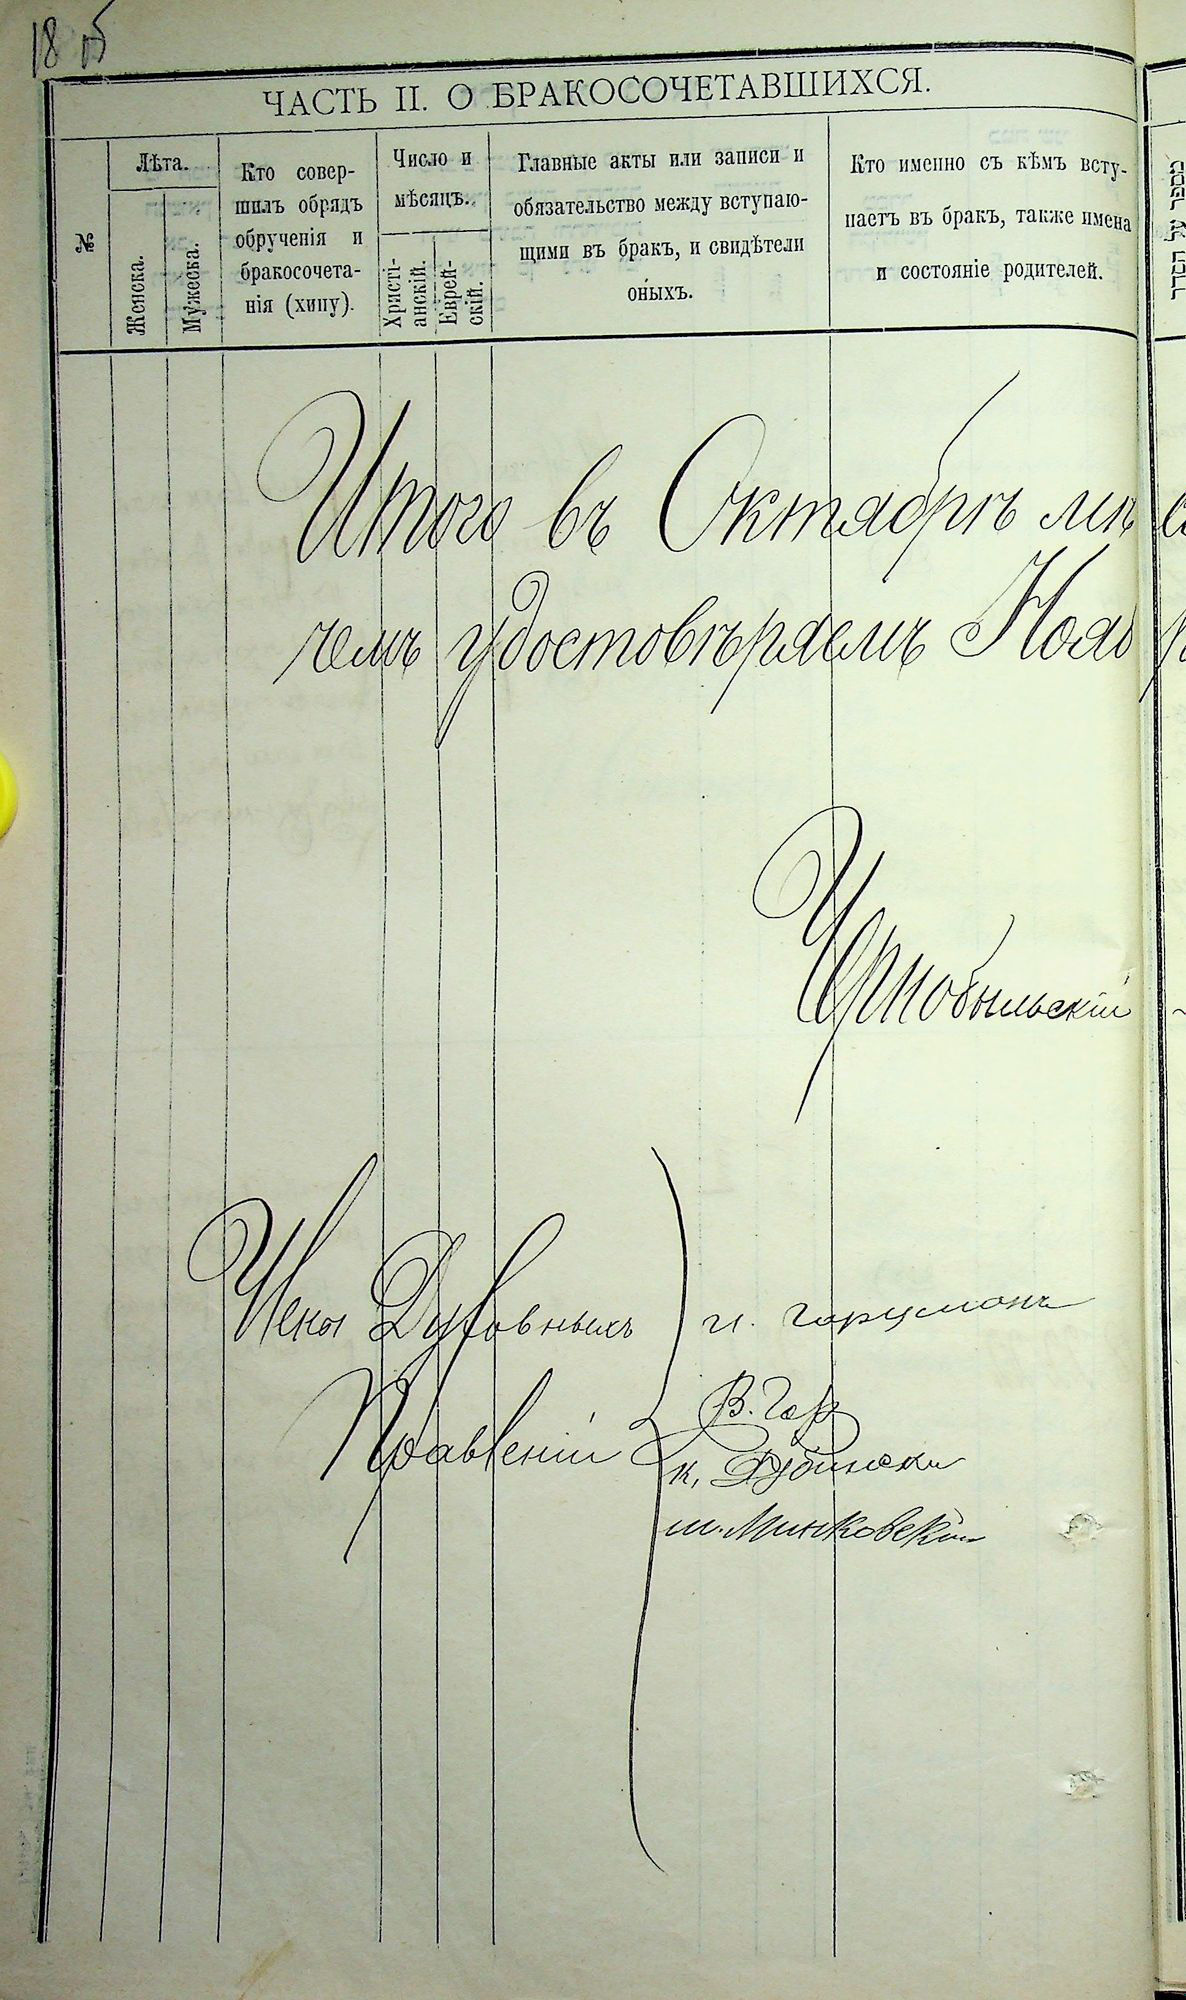 18 об
ЧАСТЬ II. О БРАКОСОЧЕТАВШИХСЯ.
№
Лѣта.
Женска.
Мужеска.
Кто совер-
шилъ обрядъ
обрученія и
бракосочета-
нія (хипу).
Число и
мѣсяцъ.
Христі-
анскій.
Еврей-
скій.
Главные акты или записи и
обязательство между вступаю-
щими въ бракъ, и свидѣтели
оныхъ.
Кто именно съ кѣмъ всту-
паетъ въ бракъ, также имена
и состояніе родителей.
Итого въ Октябрѣ мѣс
чемъ удостовѣряемъ Нояб
Чернобыльскій
Члены Духовныхъ
Правленій
В. Гор
К. Дубински
м. Минковскій